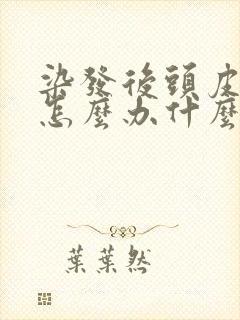 染發後頭皮
怎麼办什麼
葉葉然